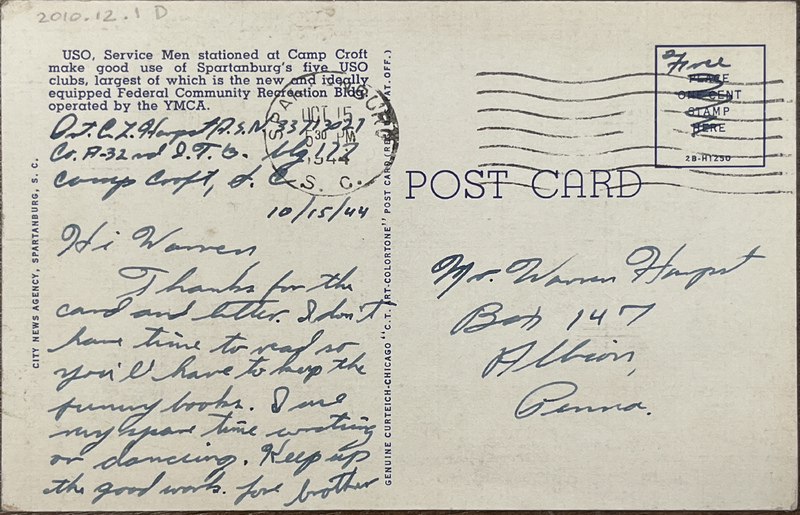 2010.12.1 D
USO, Service Men stationed at Camp Croft
make good use of Spartanburg's five USO
clubs, largest of which is the new and ideally
equipped Federal Community Recreation Bldg.
operated by the YMCA.
Pvt. C. L. Harpst A.S.N. 33713027
Co. A-32nd I.T.B.
Camp Croft, S.C.
10/15/44
Hi Warren
Thanks for the
card and letter. I don't
have time to read so
you'll have to keep the
funny books. I use
my spare time writing
or dancing. Keep up
the good work. brother
CITY NEWS AGENCY, SPARTANBURG, S. C.
GENUINE CURTEICH-CHICAGO "C.T. ART-COLORTONE" POST CARD (REG. U.S. PAT. OFF.)
OCT 15
5 30 PM
1944
S. C.
POST CARD
Free
PLACE
ONE CENT
STAMP
HERE
2B-H1250
Mr. Warren Harpst
Box 147
Albion,
Penna.